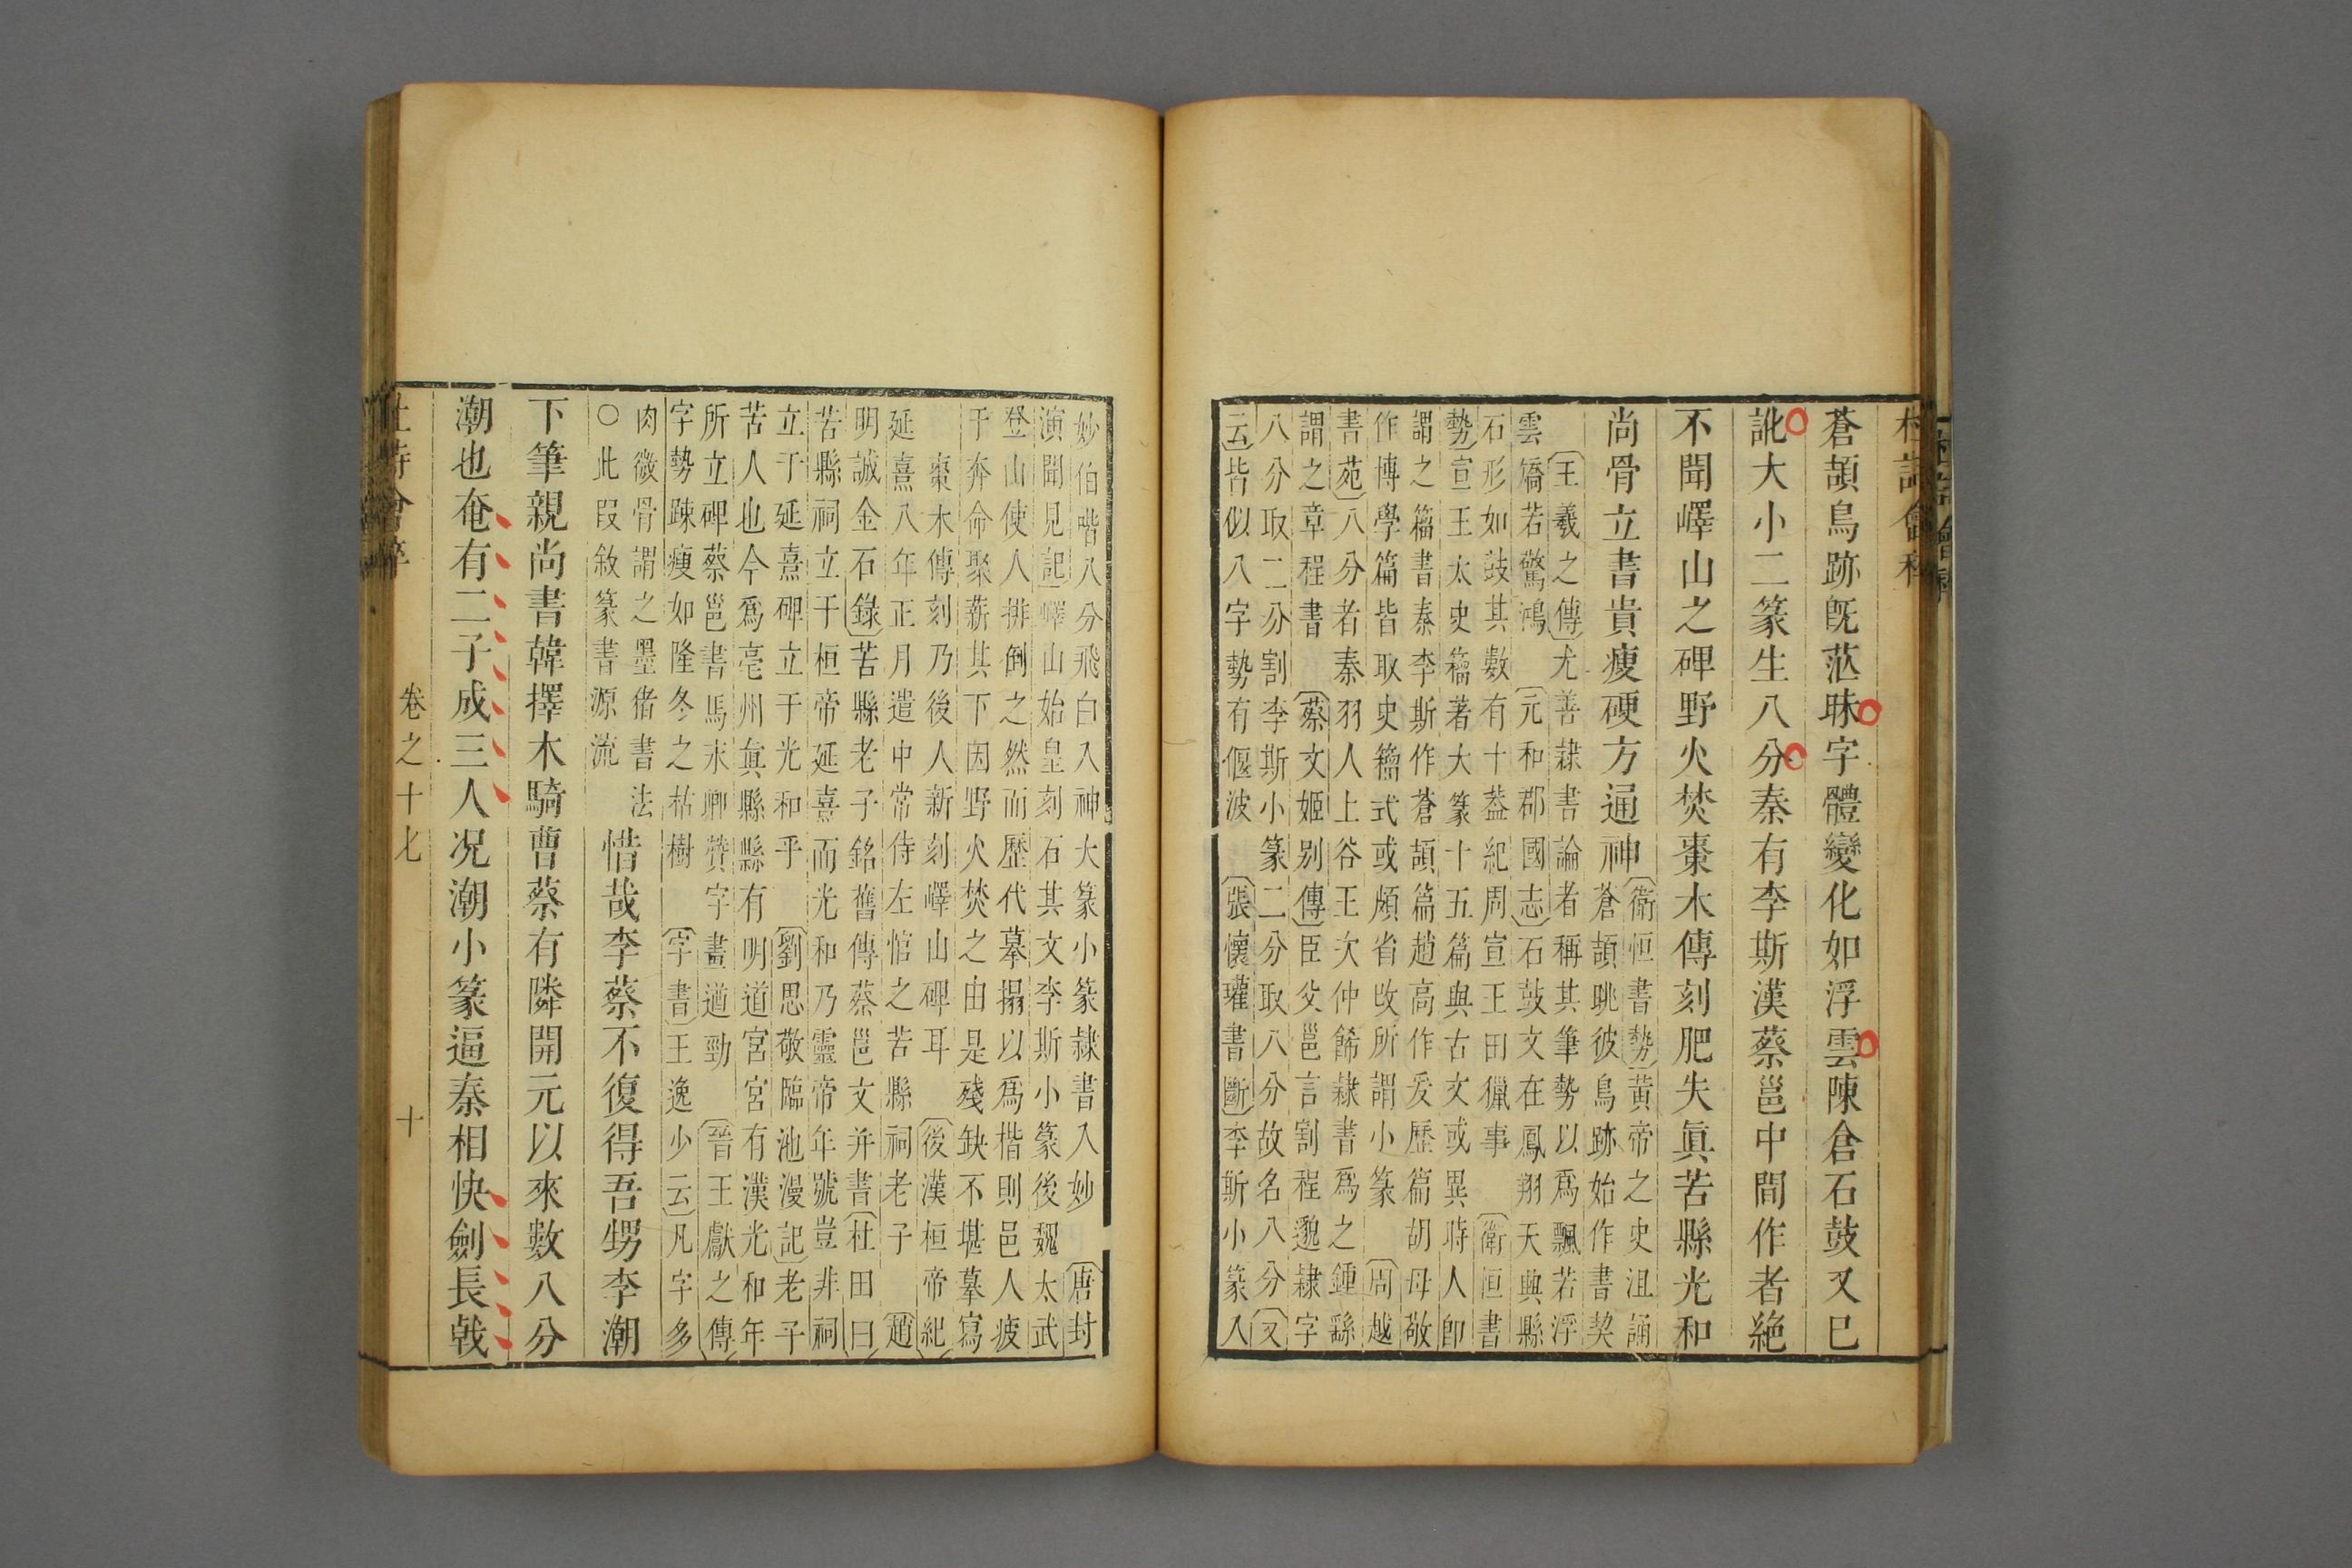 杜詩會稡
蒼頡鳥跡旣茫昧字體變化如浮雲陳倉石鼓又已
訛大小二篆生八分秦有李斯漢蔡邕中間作者絶
不聞嶧山之碑野火焚棗木傳刻肥失眞苦縣光和
尚骨立書貴瘦硬方通神
衛恒書勢黃帝之史沮誦
蒼頡眺彼鳥跡始作書契
王羲之傳尤善隸書論者稱其筆勢以爲飄若浮
雲矯若驚鴻
元和郡國志石鼓文在鳳翔天興縣
石形如鼓其數有十葢紀周宣王田獵事
衛恒書
勢宣王太史籒著大篆十五篇與古文或異時人卽
謂之籒書秦李斯作蒼頡篇趙高作爰歷篇胡母敬
作博學篇皆取史籒式或頗省改所謂小篆
周越
書苑八分者秦羽人上谷王次仲餙隸書爲之鍾繇
謂之章程書
蔡文姬别傳臣父邕言割程邈隸字
八分取二分割李斯小篆二分取八分故名八分又
云皆似八字勢有偃波
張懷瓘書斷李斯小篆入
妙伯喈八分飛白入神大篆小篆隸書入妙
唐封
演聞見記嶧山始皇刻石其文李斯小篆後魏太武
登山使人排倒之然而歷代摹搨以爲楷則邑人疲
于奔命聚薪其下因野火焚之由是殘缺不堪摹寫
棗木傳刻乃後人新刻嶧山碑耳
後漢桓帝紀
延熹八年正月遣中常侍左悺之苦縣祠老子
趙
明誠金石錄苦縣老子銘舊傳蔡邕文并書杜田曰
苦縣祠立于桓帝延熹而光和乃靈帝年號豈非祠
立于延熹碑立于光和乎
劉思敬臨池漫記老子
苦人也今爲亳州眞縣縣有明道宮宮有漢光和年
所立碑蔡邕書馬末卿贊字畫遒勁
晉王獻之傳
字勢踈瘦如隆冬之枯樹
字書王逸少云凡字多
肉微骨謂之墨猪書法
○此叚敘篆書源流
惜哉李蔡不復得吾甥李潮
下筆親尚書韓擇木騎曹蔡有隣開元以來數八分
潮也奄有二子成三人况潮小篆逼秦相快劍長戟
卷之十七
十